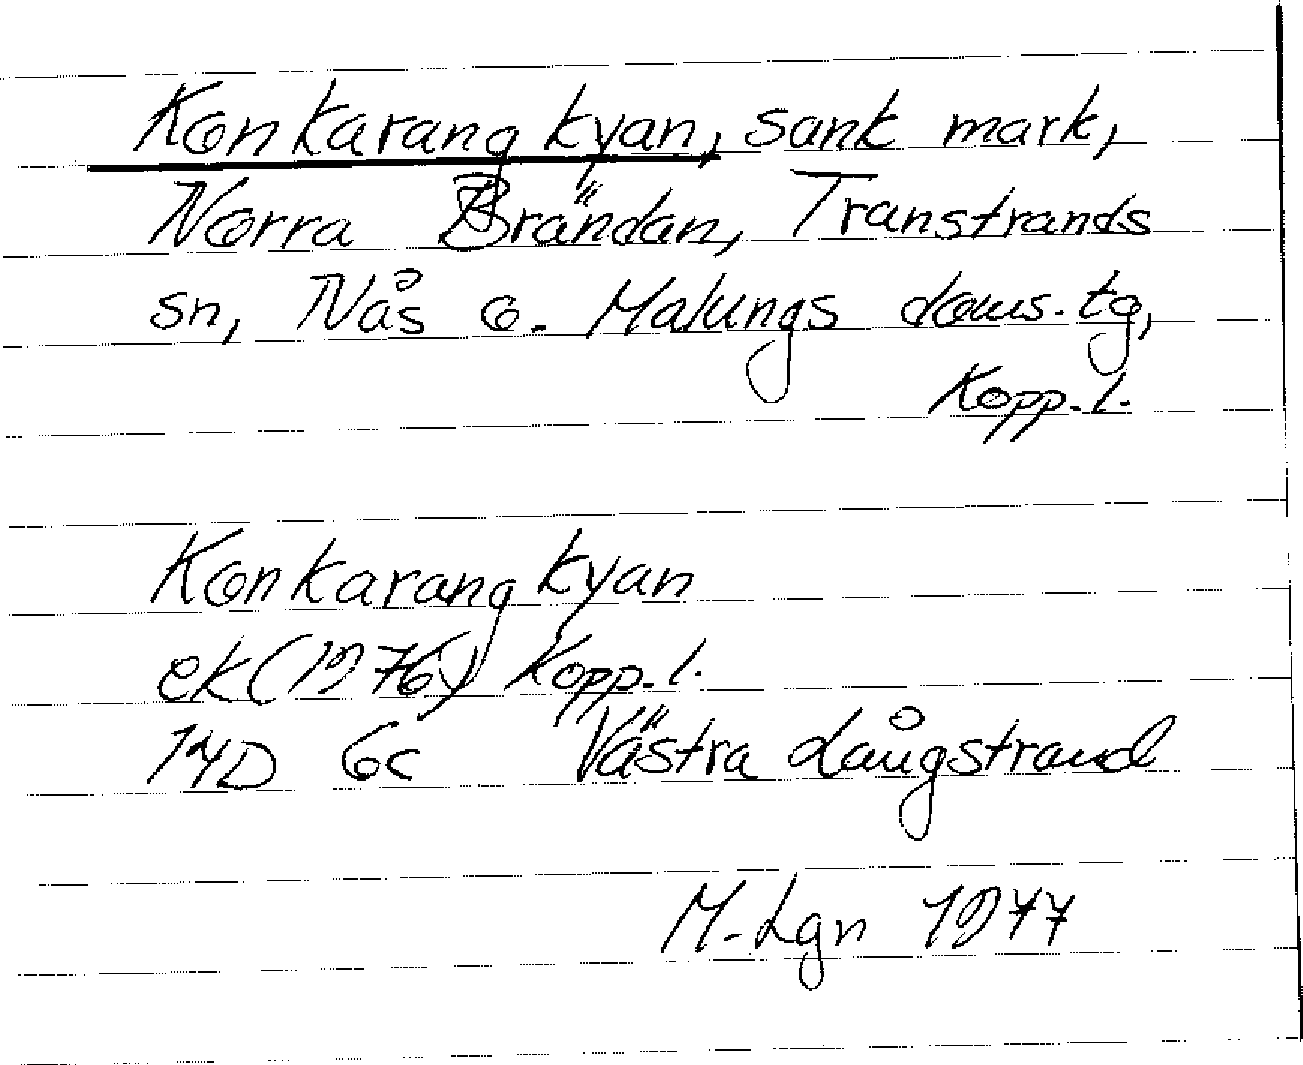 Konkarangkyan, sank mark,
Norra Brändan, Transtrands
sn, Nås o. Malungs doms. tg,
Kopp. l.
Konkarangkyan
ek (1976) Kopp. l.
14D 6c Västra Långstrand
M-Lgn 1977